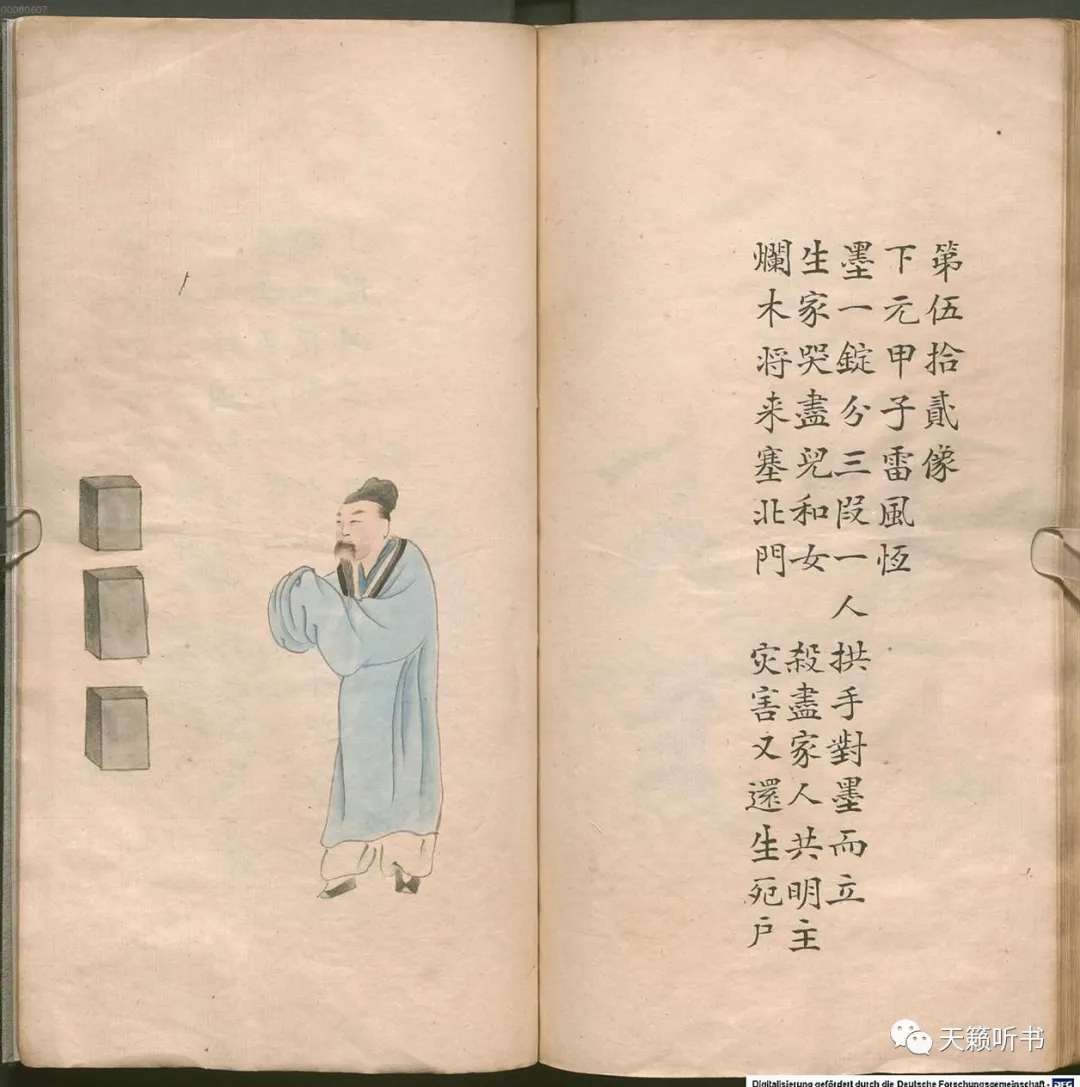 00080607
第伍拾貳像
下元甲子雷風恆
墨一錠分三段一人拱手對墨而立
生家哭盡兒和女 殺盡家人共明主
爛木将来塞北門 灾害又還生死户
天籁听书
Digitalisierung gefördert durch die Deutsche Forschungsgemeinschaft - DFG